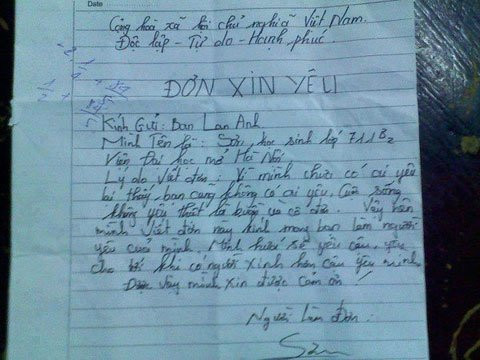 Date
Cộng hoà xã hội chủ nghĩa Việt Nam.
Độc lập - Tự do - Hạnh phúc.
ĐƠN XIN YÊU
Kính Gửi: Bạn Lan Anh
Mình Tên là: Sơn, học sinh lớp 711B2
Viện Đại học mở Hà Nội
Lý do Viết đơn: Vì mình chưa có ai yêu
thấy bạn cũng không có ai yêu, Cuộc sống
không yêu thật là buồn và cô đơn. Vậy nên
mình viết đơn này kính mong bạn làm người
yêu của mình. Mình hứa sẽ yêu cậu, yêu
cho tới khi có người xinh hơn cậu yêu mình
Được vậy mình xin được cảm ơn!
Người Làm Đơn: